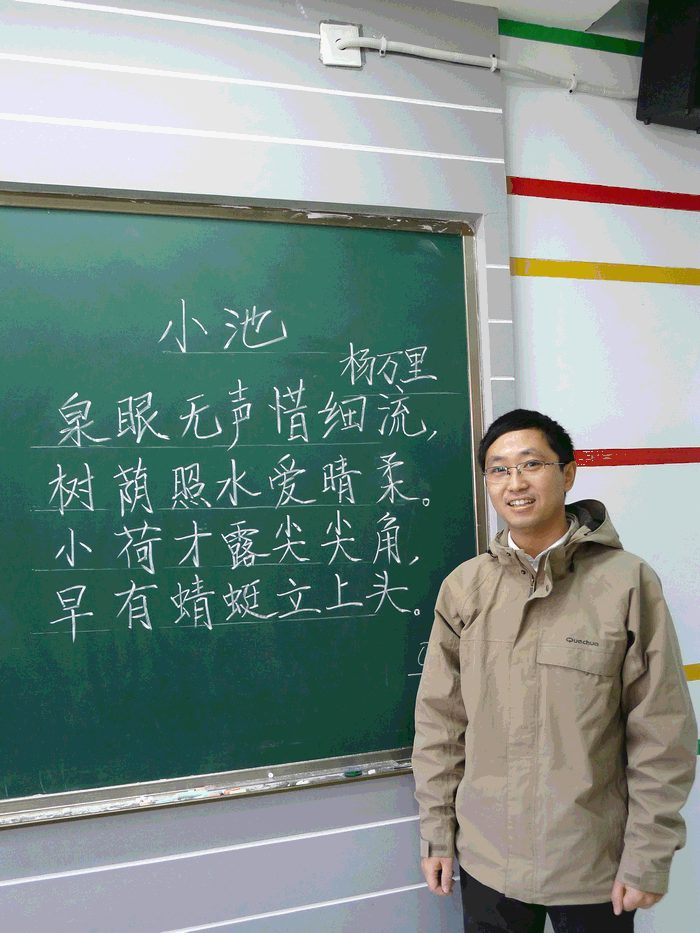 小池
杨万里
泉眼无声惜细流,
树荫照水爱晴柔。
小荷才露尖尖角,
早有蜻蜓立上头。
Quechua